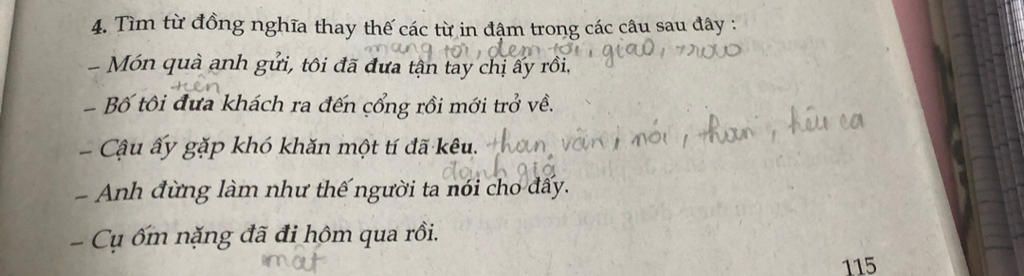 4. Tìm từ đồng nghĩa thay thế các từ in đậm trong các câu sau đây :
mang tới, đem tới, giao, trao
– Món quà anh gửi, tôi đã đưa tận tay chị ấy rồi.
tiễn
– Bố tôi đưa khách ra đến cổng rồi mới trở về.
– Cậu ấy gặp khó khăn một tí đã kêu. than vãn, nói, than, kêu ca
đánh giá
– Anh đừng làm như thế người ta nói cho đấy.
– Cụ ốm nặng đã đi hôm qua rồi.
mất
115